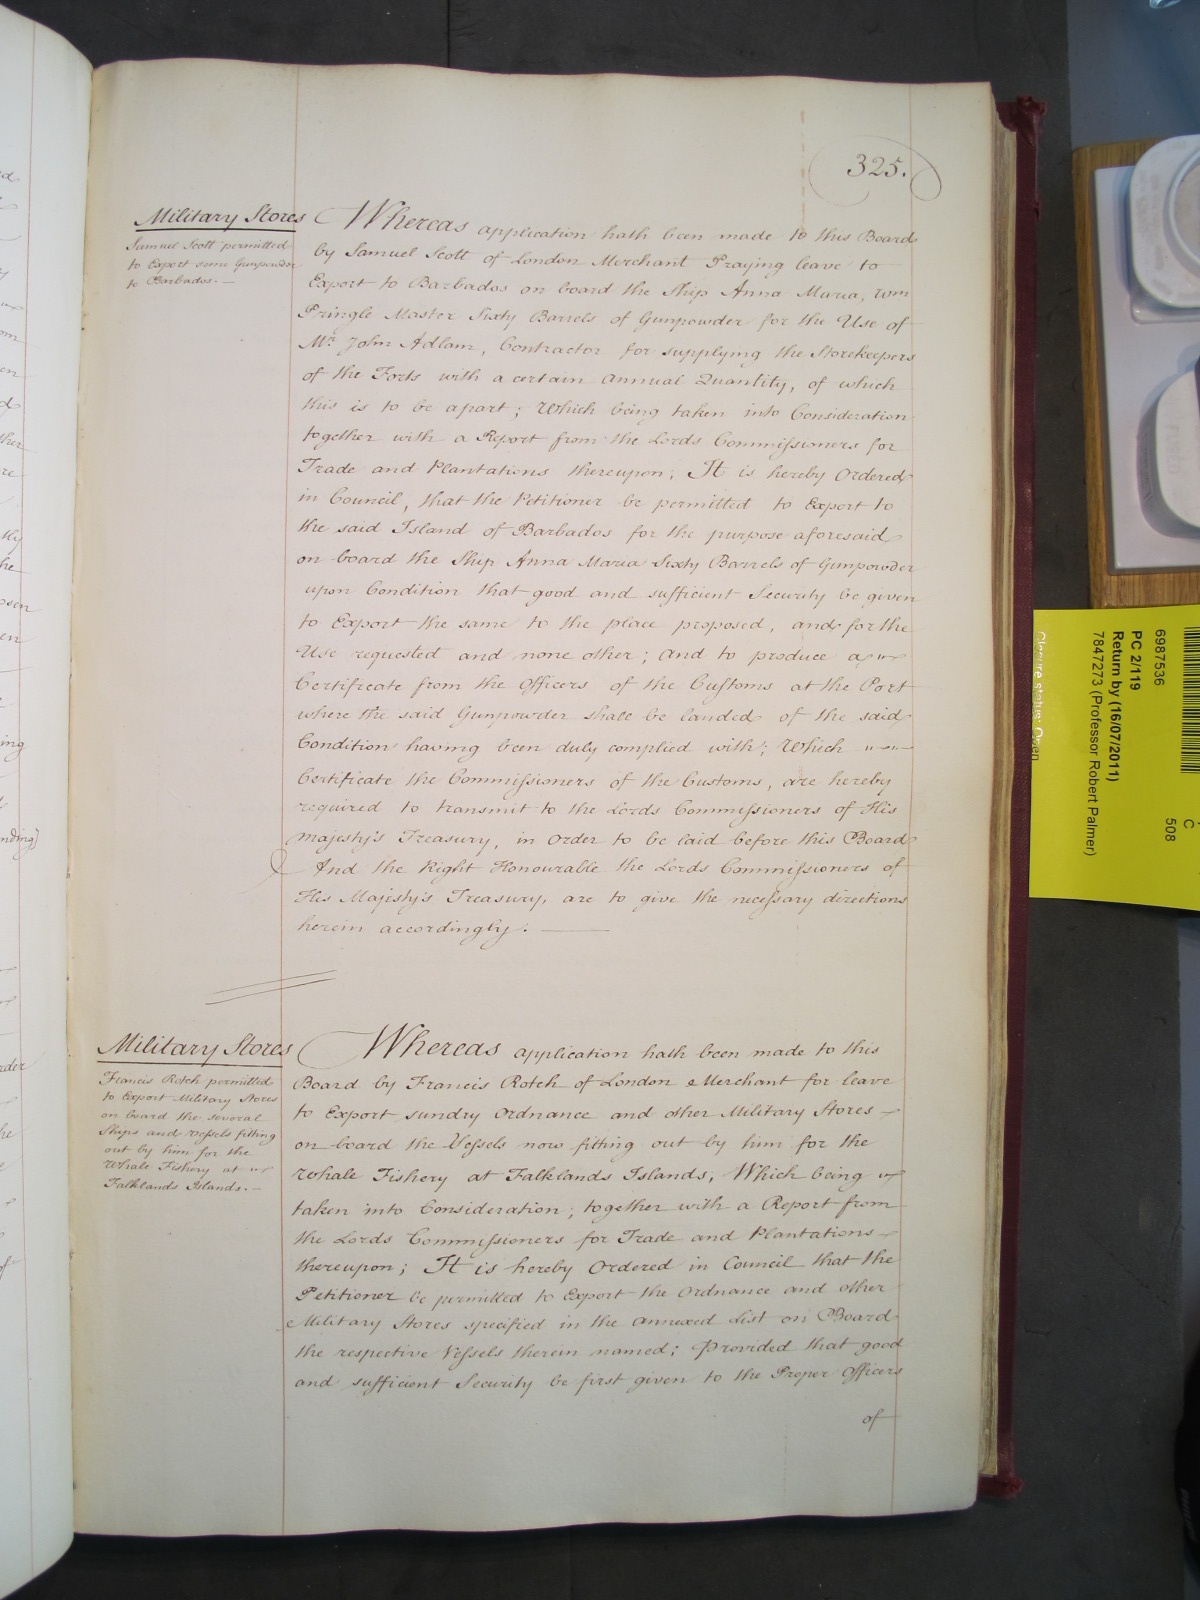 325.
Military Stores
Samuel Scott permitted
to Export some Gunpowder
to Barbados. —
Whereas application hath been made to this Board
by Samuel Scott of London Merchant Praying leave to
Export to Barbados on board the Ship Anna Maria, Wm
Pringle Master Sixty Barrels of Gunpowder for the Use of
Mr. John Adlam, Contractor for supplying the Storekeepers
of the Forts with a certain Annual Quantity, of which
this is to be apart; Which being taken into Consideration
together with a Report from the Lords Commissioners for
Trade and Plantations thereupon, It is hereby Ordered
in Council, that the Petitioner be permitted to Export to
the said Island of Barbados for the purpose aforesaid
on board the Ship Anna Maria Sixty Barrels of Gunpowder
upon Condition that good and sufficient Security be given
to Export the same to the place proposed, and for the
Use requested and none other; and to produce a
Certificate from the Officers of the Customs at the Port
where the said Gunpowder shall be landed of the said
Condition having been duly complied with; Which
Certificate the Commissioners of the Customs, are hereby
required to transmit to the Lords Commissioners of His
Majesty's Treasury, in order to be laid before this Board
And the Right Honourable the Lords Commissioners of
His Majesty's Treasury, are to give the necessary directions
herein accordingly. —
Military Stores
Francis Rotch permitted
to Export Military Stores
on board the several
Ships and Vessels fitting
out by him for the
Whale Fishery at
Falklands Islands. —
Whereas application hath been made to this
Board by Francis Rotch of London Merchant for leave
to Export sundry Ordnance and other Military Stores
on board the Vessels now fitting out by him for the
Whale Fishery at Falklands Islands, Which being
taken into Consideration; together with a Report from
the Lords Commissioners for Trade and Plantations
thereupon; It is hereby Ordered in Council that the
Petitioner be permitted to Export the Ordnance and other
Military Stores specified in the annexed List on Board
the respective Vessels therein named; Provided that good
and sufficient Security be first given to the Proper Officers
of
6987536
PC 2/119
Return by (16/07/2011)
7847273 (Professor Robert Palmer)
Closure status: Open
C
508